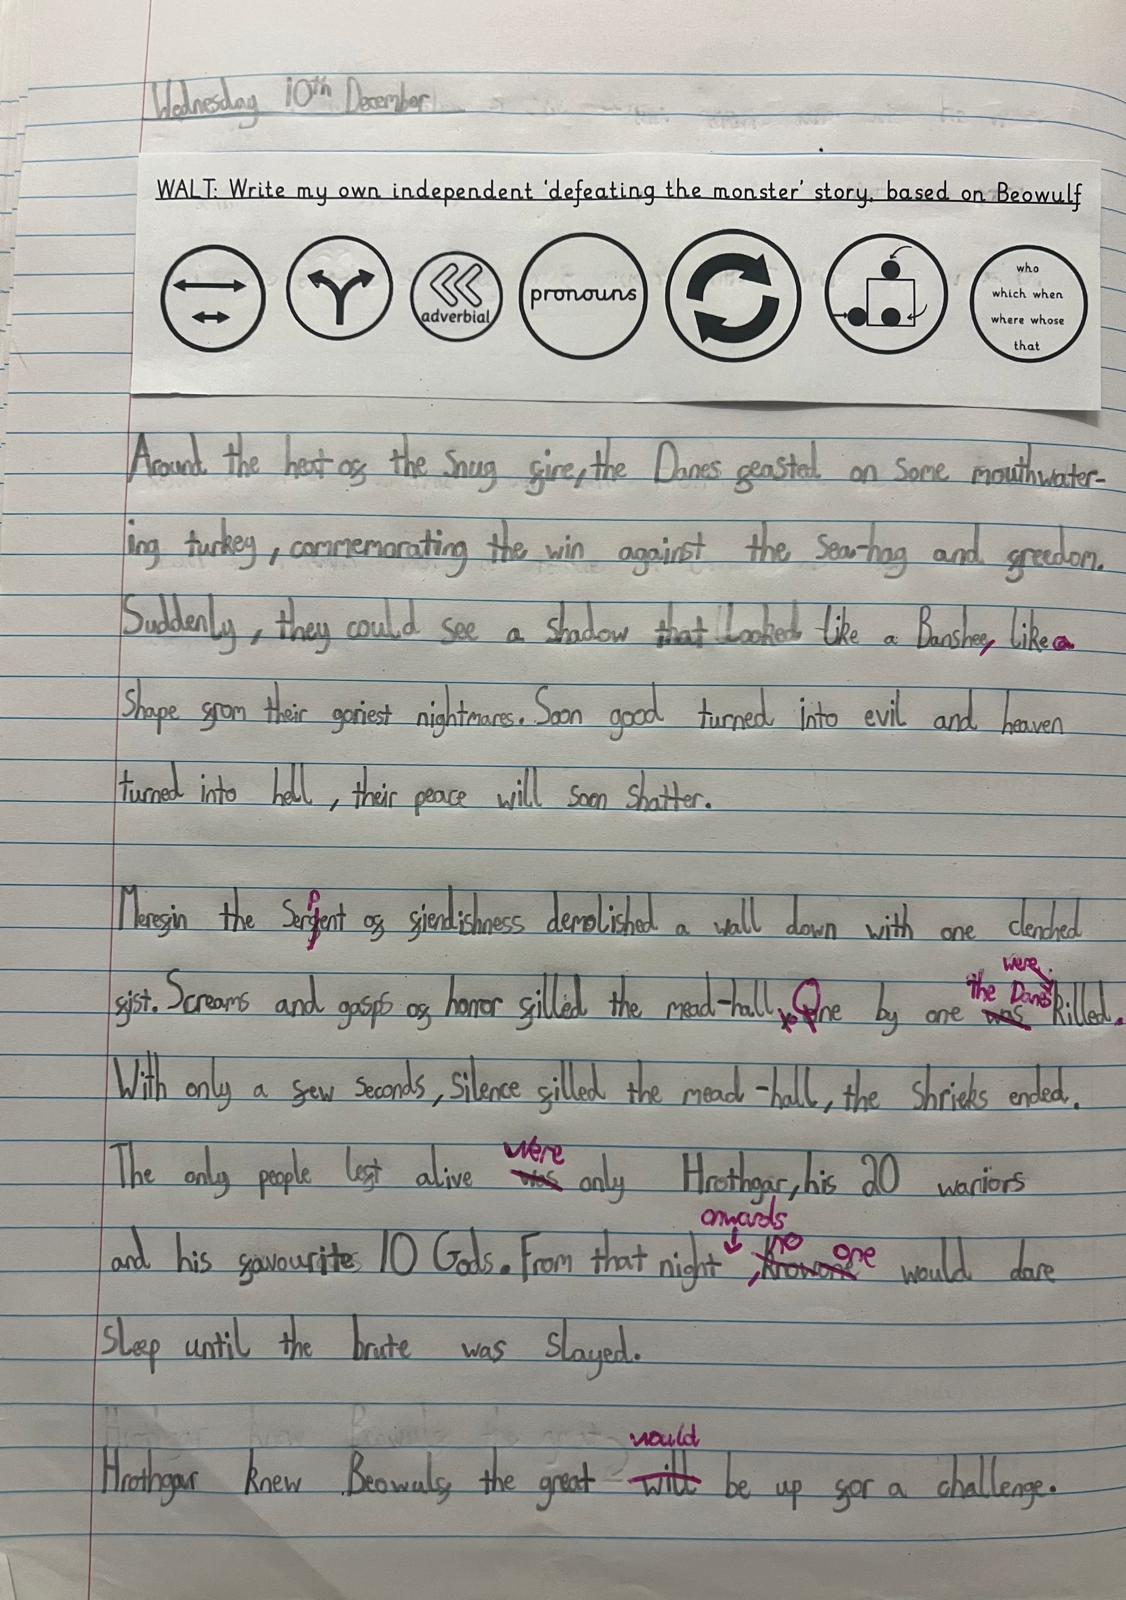 Wednesday 10th December
WALT: Write my own independent 'defeating the monster' story, based on Beowulf
adverbial
pronouns
who
which when
where whose
that
Around the heat of the snug fire, the Danes feasted on some mouthwater-
ing turkey, commemorating the win against the Sea-hag and freedom.
Suddenly, they could see a shadow that looked like a Banshee, like a
shape from their goriest nightmares. Soon good turned into evil and heaven
turned into hell, their peace will soon shatter.
Merefin the Serpent of fiendishness demolished a wall down with one clenched
were
the Danes
fist. Screams and gasps of horror filled the mead-hall. One by one was killed.
With only a few seconds, silence filled the mead-hall, the shrieks ended.
were
The only people left alive was only Hrothgar, his 20 warriors
onwards
no one
and his favourites 10 Gods. From that night, knowone would dare
sleep until the brute was slayed.
would
Hrothgar knew Beowulf, the great will be up for a challenge.